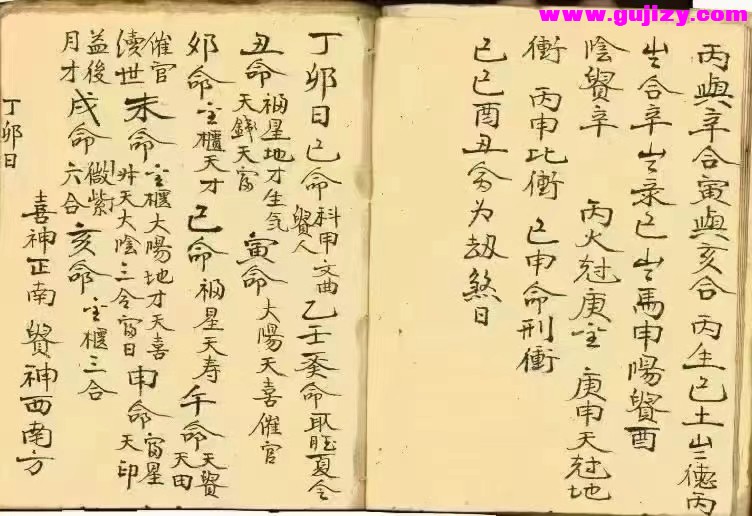 www.gujizy.com
丙與辛合寅與亥合 丙生己土 岀三德丙
岀合辛岀录巳岀馬申陽貿酉
陰貿辛 丙火尅庚金 庚申天尅地
衝 丙申比衝 巳申命刑衝
巳巳酉丑命为劫煞日
丁卯日巳命科甲文曲貿人乙壬癸命取旺夏令
丑命福星地才生气天錢天富寅命大陽天喜催官
卯命金櫃天才 巳命福星天寿 午命天貿天田
催官濟世未命金櫃大陽地才天喜 大陰三合富日申命富星天印
益後月才戌命紫微六合 亥命金櫃三合
丁卯日
喜神正南貿神西南方